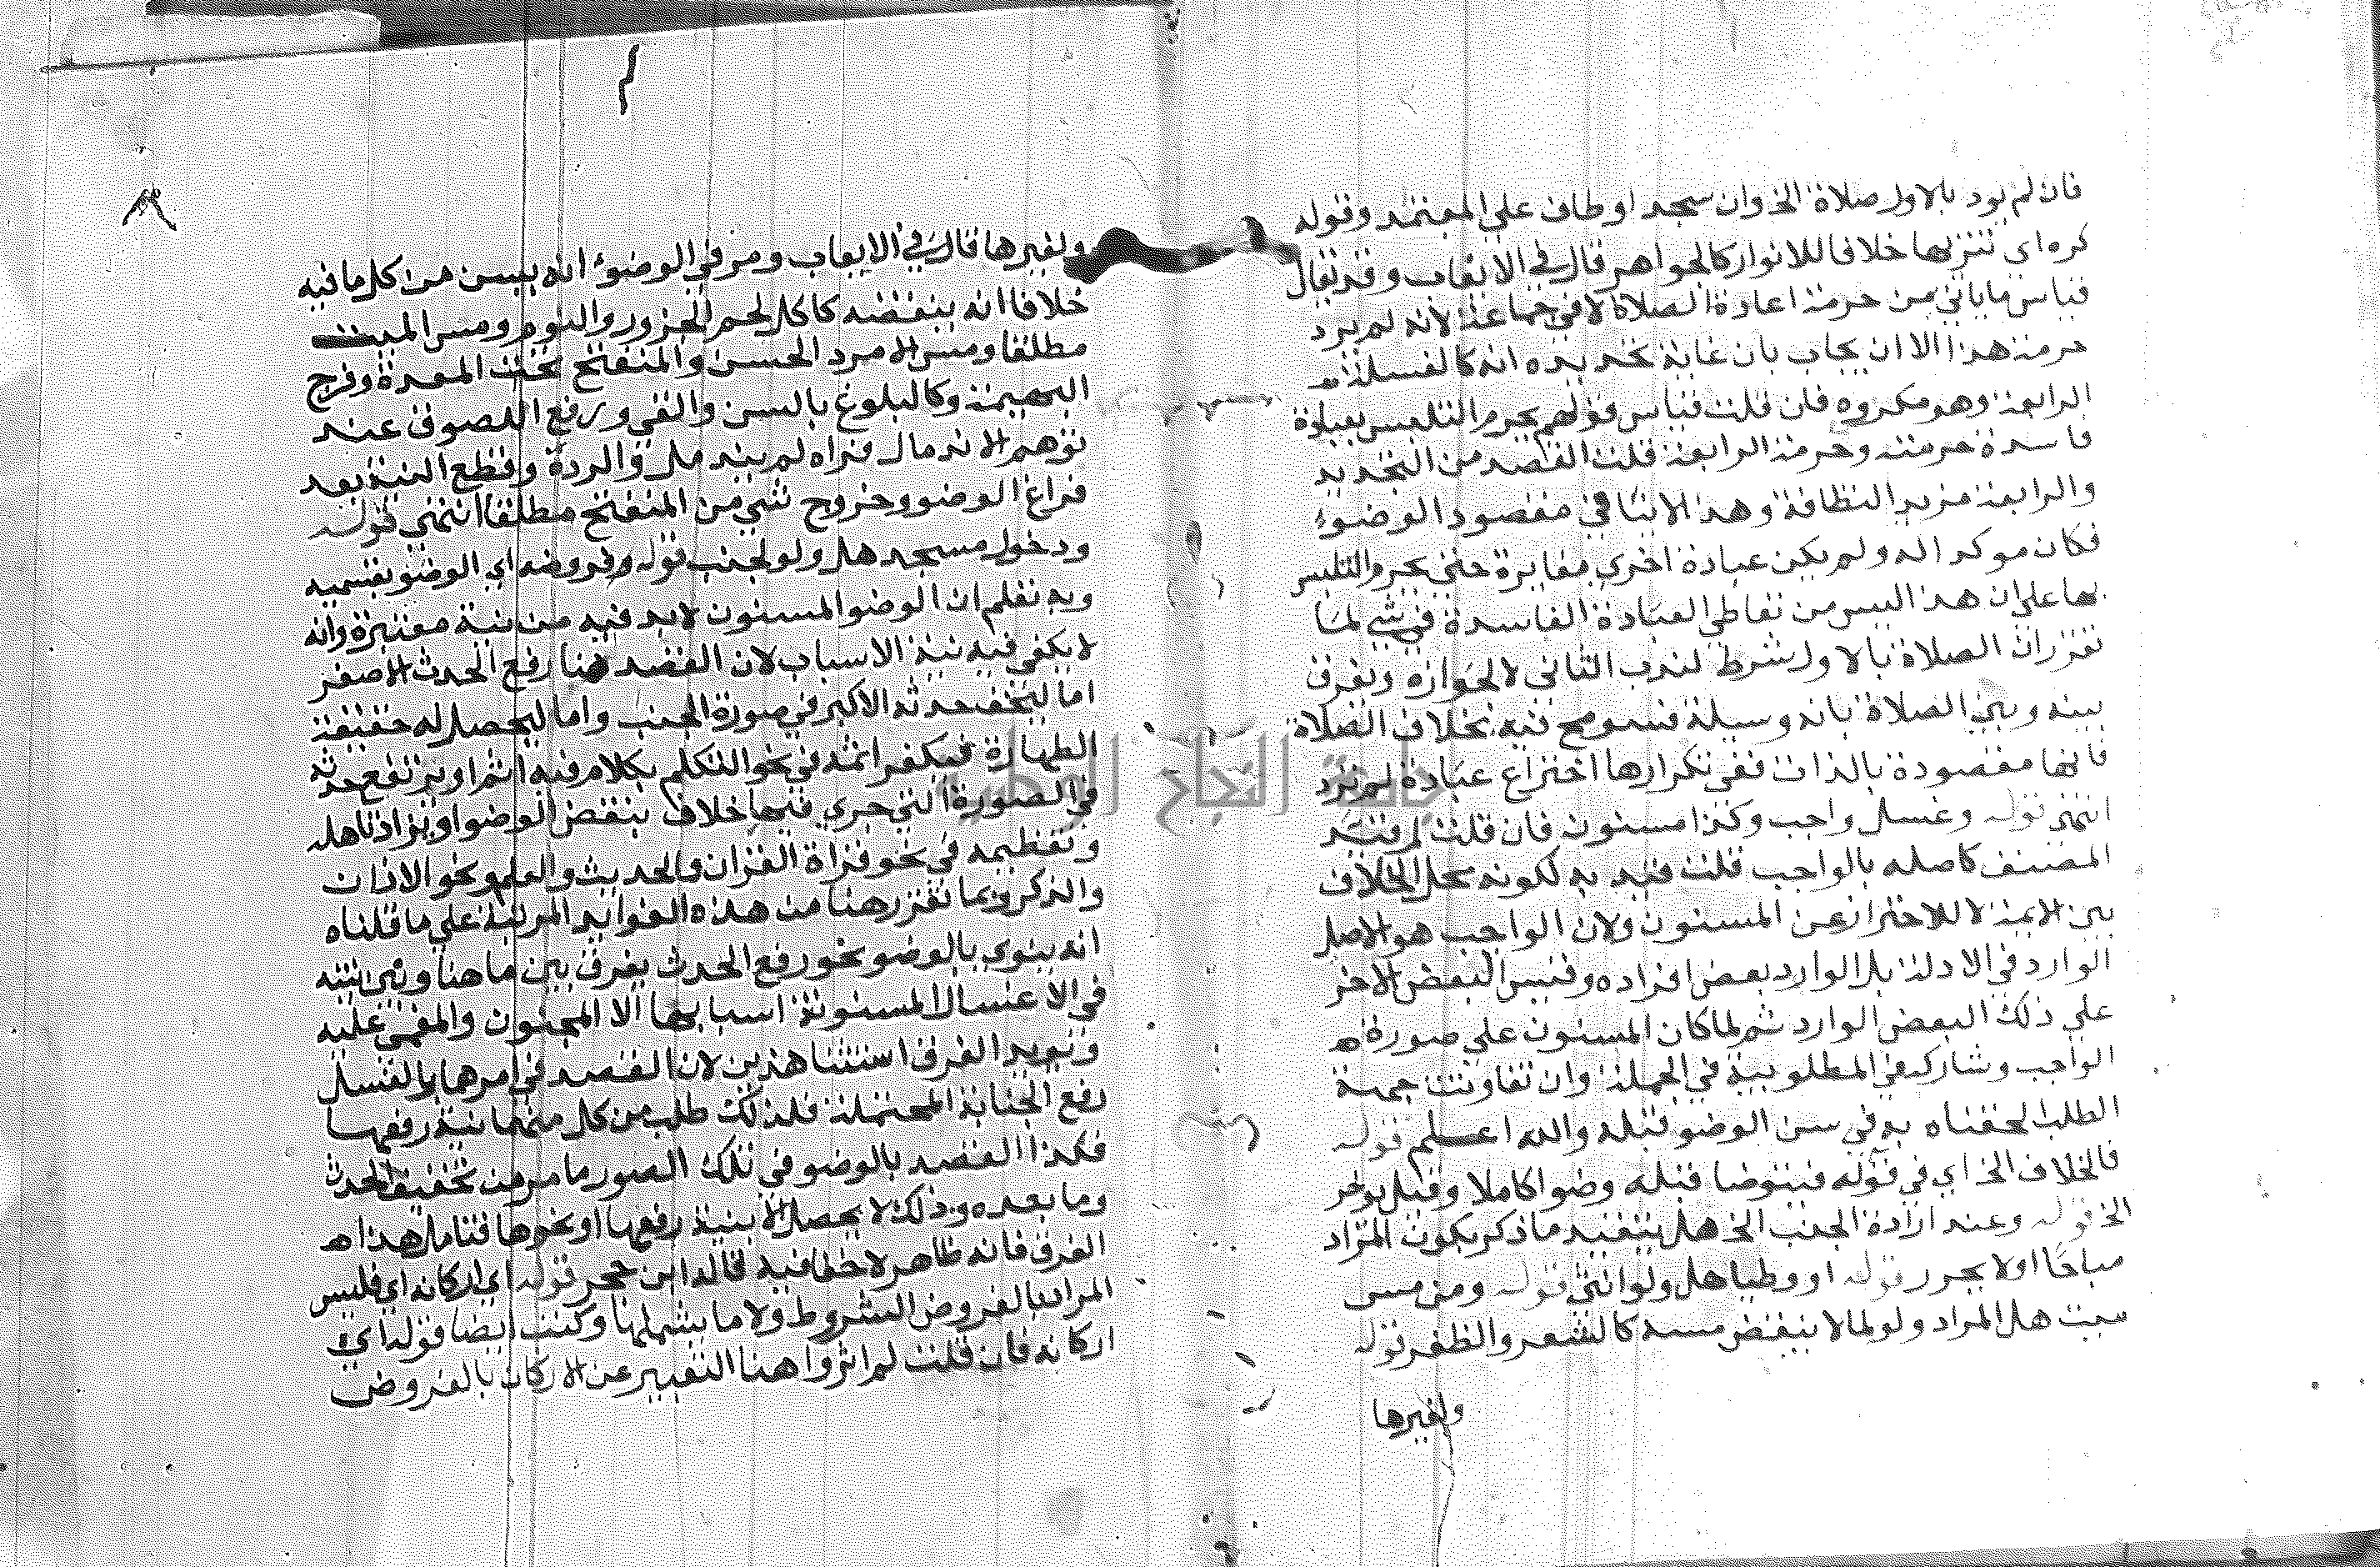 فان لم يود بالاول صلاة الخ وان سجد او طاف علي المعتمد وقوله
كره اي تنزيها خلافا للانوار كالجواهر قال في الايعاب وقد يقال
قياس ما ياتي من حرمة اعادة الصلاة لا في جماعة لانه لم يرد
حرمة هذا الا ان يجاب بان غاية تجديده انه كالغسلة
الرابعة وهو مكروه فان قلت قياس قولهم يحرم التلبس بعبادة
فاسدة حرمته وحرمة الرابعة قلت القصد من التجديد
والرابعة مزيد النظافة وهذا لا ينافي مقصود الوضوء
فكان موكدا له ولم يكن عبادة اخري مغايرة حتي يحرم التلبس
بها علي ان هذا ليس من تعاطي العبادة الفاسدة في شي لما
تقرر ان الصلاة بالاول شرط لندب الثاني لا لجوازه ويفرق
بينه وبين الصلاة بانه وسيلة فسومح فيه بخلاف الصلاة
فانها مقصودة بالذات ففي تكرارها اختراع عبادة لم ترد
انتهي قوله وغسل واجب وكذا مسنون فان قلت لم قيد
المصنف كاصله بالواجب قلت قيد به لكونه محل الخلاف
بين الايمة لا للاحتراز عن المسنون ولان الواجب هو الاصل
الوارد في الادلة بل الوارد بعض افراده وقيس البعض الاخر
علي ذلك البعض الوارد ثم لما كان المسنون علي صورة
الواجب وشاركه في المطلوبية في الجملة وان تفاوتت جهة
الطلب الحقناه به في سن الوضو قبله والله اعلم قوله
فالخلاف الخ اي في قوله فيتوضا قبله وضوا كاملا وقيل يوخر
الخ قوله وعند ارادة الجنب الخ هل يتقيد ما ذكر بكون المراد
مباحا او لا يحرر قوله او وطيا هل ولو انثي قوله ومن مس
ميت هل المراد ولو لما لا ينقض مسه كالشعر والظفر قوله
ولغيرها
ولغيرها قال في الايعاب ومر في الوضوء انه يسن من كل ما فيه
خلافا انه ينقضه كاكل لحم الجزور والنوم ومس الميت
مطلقا ومس الامرد الحسن والمنفتح تحت المعدة وفرج
البهيمة وكالبلوغ بالسن والقي ورفع اللصوق عند
توهم الاندمال فراه لم يندمل والردة وقطع النية بعد
فراغ الوضو وخروج شي من المنفتح مطلقا انتهي قوله
ودخول مسجد هل ولو لجنب قوله وفروضه اي الوضو بقسميه
وبه تعلم ان الوضو المسنون لابد فيه من نية معتبرة وانه
لا يكفي فيه نية الاسباب لان القصد هنا رفع الحدث الاصغر
اما ليخف حدثه الاكبر في صورة الجنب واما ليحصل له حقيقة
الطهارة فيكفر اثمه في نحو التكلم بكلام فيه اثم او يرتفع حدثه
في الصورة التي جري فيها خلاف بنقض الوضو او يزاد تاهله
وتعظيمه في نحو قراة القران والحديث والعلم ونحو الاذان
والذكر وبما تقرر هنا من هذه الفوايد المرتبة علي ما قلناه
انه ينوي بالوضو نحو رفع الحدث يفرق بين ما هنا وبين نيته
في الاغتسال المسنونة اسبابها الا المجنون والمغمي عليه
ويويد الفرق استثنا هذين لان القصد في امرهما بالغسل
رفع الجنابة المحتملة فلذلك طلب من كل منهما نية رفعها
فكذا القصد بالوضو في تلك الصور ما مر من تخفيف الحدث
وما بعده وذلك لا يحصل الا بنية رفعها او نحوها فتامل هذا
الفرق فانه ظاهر لا خفا فيه قاله ابن حجر قوله اي اركانه اي فليس
المراد بالفروض الشروط ولا ما يشملها وكتب ايضا قوله اي
اركانه فان قلت لم اثروا هنا التعبير عن الاركان بالفروض